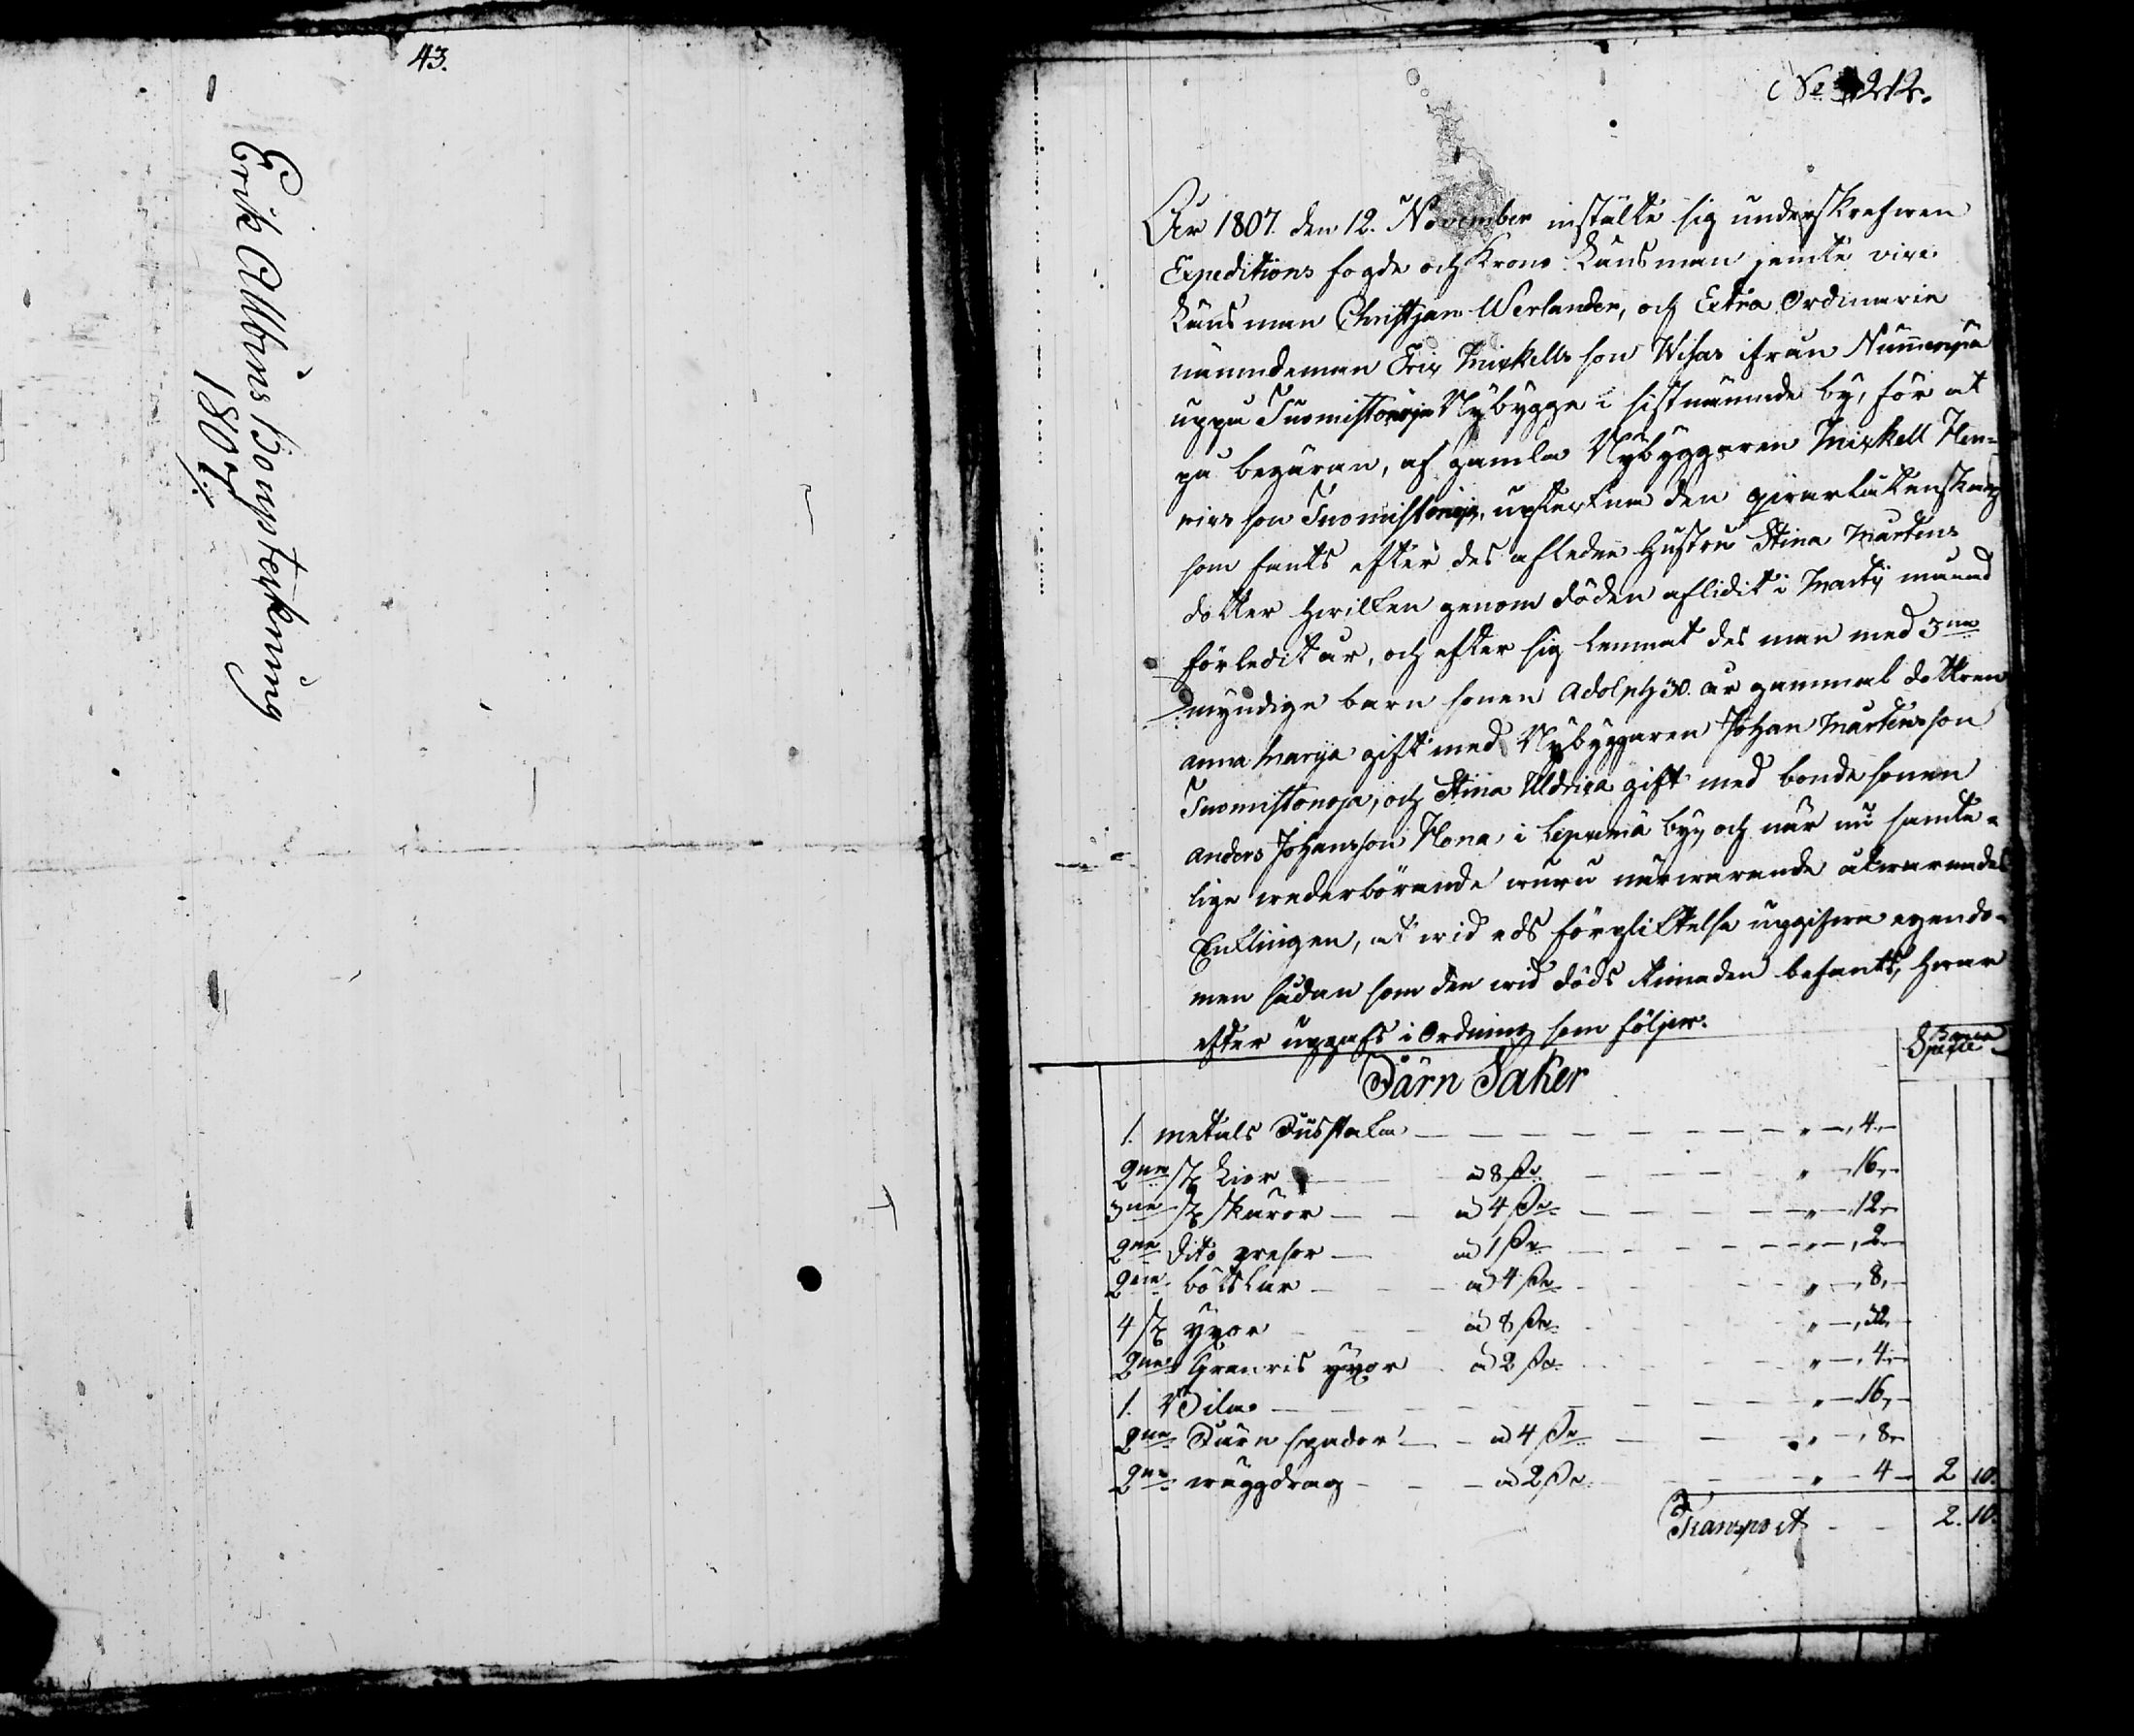 43.
Erik Abbins Bouptekning
1807.
No 212.
År 1807. den 12. November instälte sig underskrefwen
Expeditions fogde och Krono Länsman jemte vice
Länsman Christjan Werlander, och Extra Ordinarie
nämndeman Eric Mickells son Wisas ifrån Nummenpä
uppå Suomistonoja Nybygge i sistnämnde by, för at
på begäran, af gamla Nybyggaren Mickell Hen-
rics son Suomistonoja, uptekna den qvarlåtenskap
som fants efter des afledne Hustru Stina Mårtens
dotter hwilken genom döden aflidit i Martij månad
förledit år, och efter sig lemnat des man med 3ne
myndige barn sonen Adolph 30. år gammal dottren
Anna Marija gift med Nybyggaren Johan Mårtensson
Suomistonoja, och Stina Uldrica gift med bonde sonen
Anders Johansson Nona i Lepemä by, och när nu samte-
lige wederbörande woro närwarande åtwarnades
Enklingen, at wid eds förpliktelse uppgifwa egendo-
men sådan som den wid döds timaden befants, hwar
efter uppgafs i Ordning som följer.
Banco
Specie
Järn Saker
1. metals Dusstaka — " — 4 —
2ne st liar — à 8 s — " — 16 —
3ne st skäror — à 4 s — " — 12 —
2ne dito grefor — à 1 s — " — 2 —
2ne båtshar — à 4 s — " — 8 —
4 st yxor — à 8 s — " — 32 —
2ne Granris yxor à 2 s — " — 4 —
1. Bila — " — 16 —
2ne Järn spador — à 4 s — " — 8 —
2ne wäggdrag — à 2 s — " — 4 — 2 10.
Transport — 2. 10.